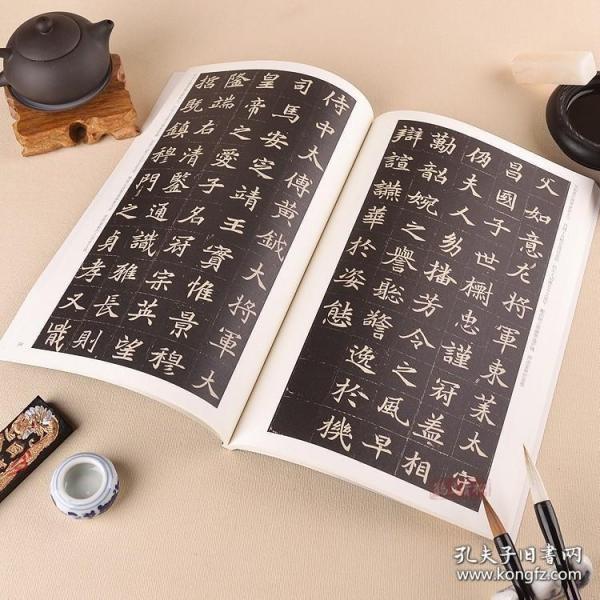 父如意龙將軍東莱太守
昌國子世檦忠謹冠盖相
仍夫人㓜播芳令之風早
勤韶婉之譽聡警逸於機
辯諠讌華於姿態
侍中太傅黄鉞大將軍大
司馬安定靖王賓惟景穆
皇帝之愛子名冠宗英望
隆端右清鑒通識雅長則
既鎮穆門之貞孝又戢
孔夫子旧书网
www.kongfz.com